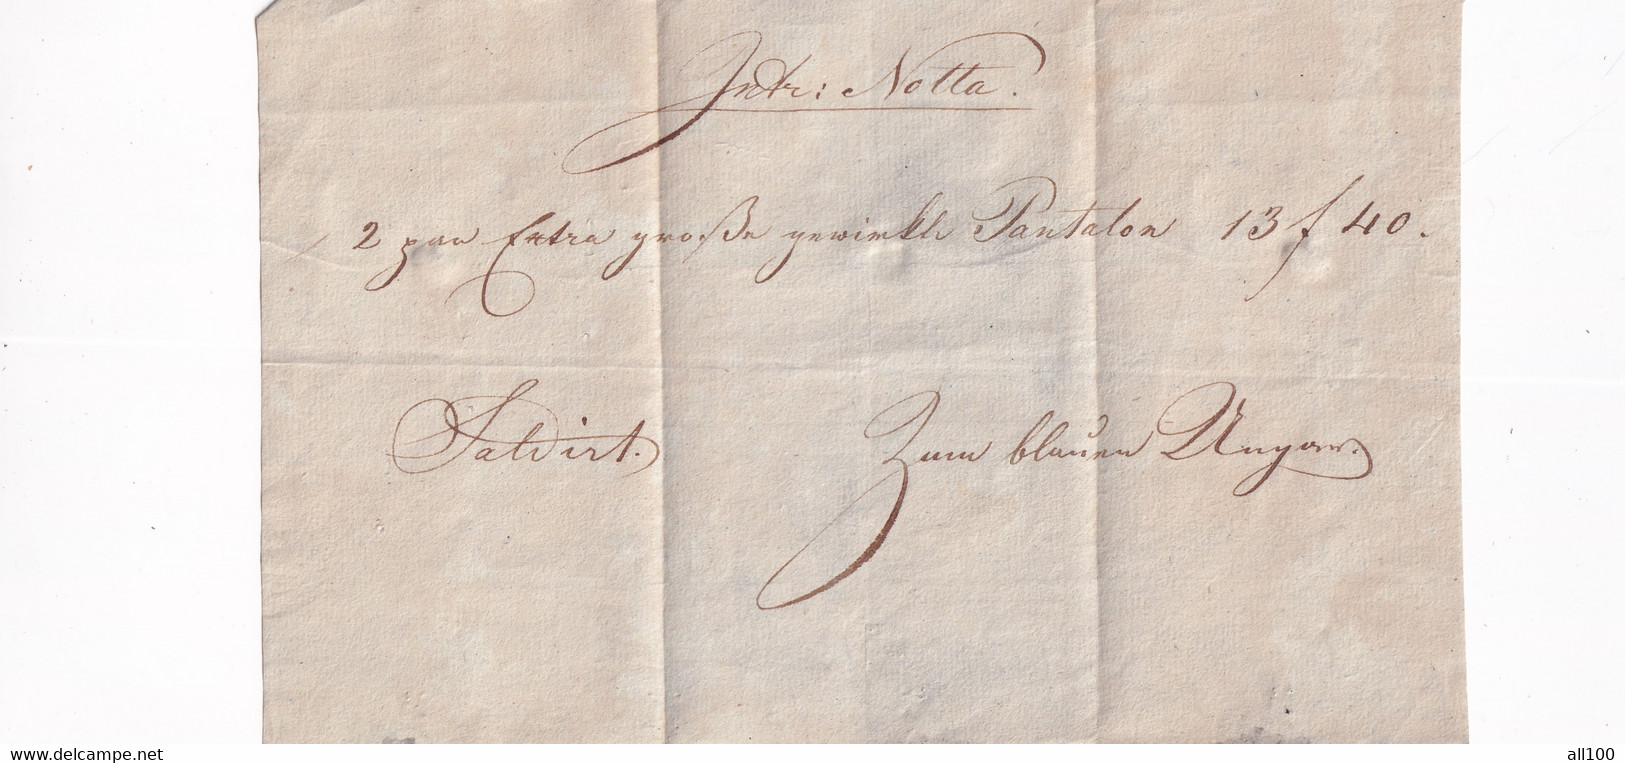 Intr: Notta.
2 paar Extra große gewirkte Pantalon 13 f 40.
Saldirt. Zum blauen Ungar.
www.delcampe.net all100